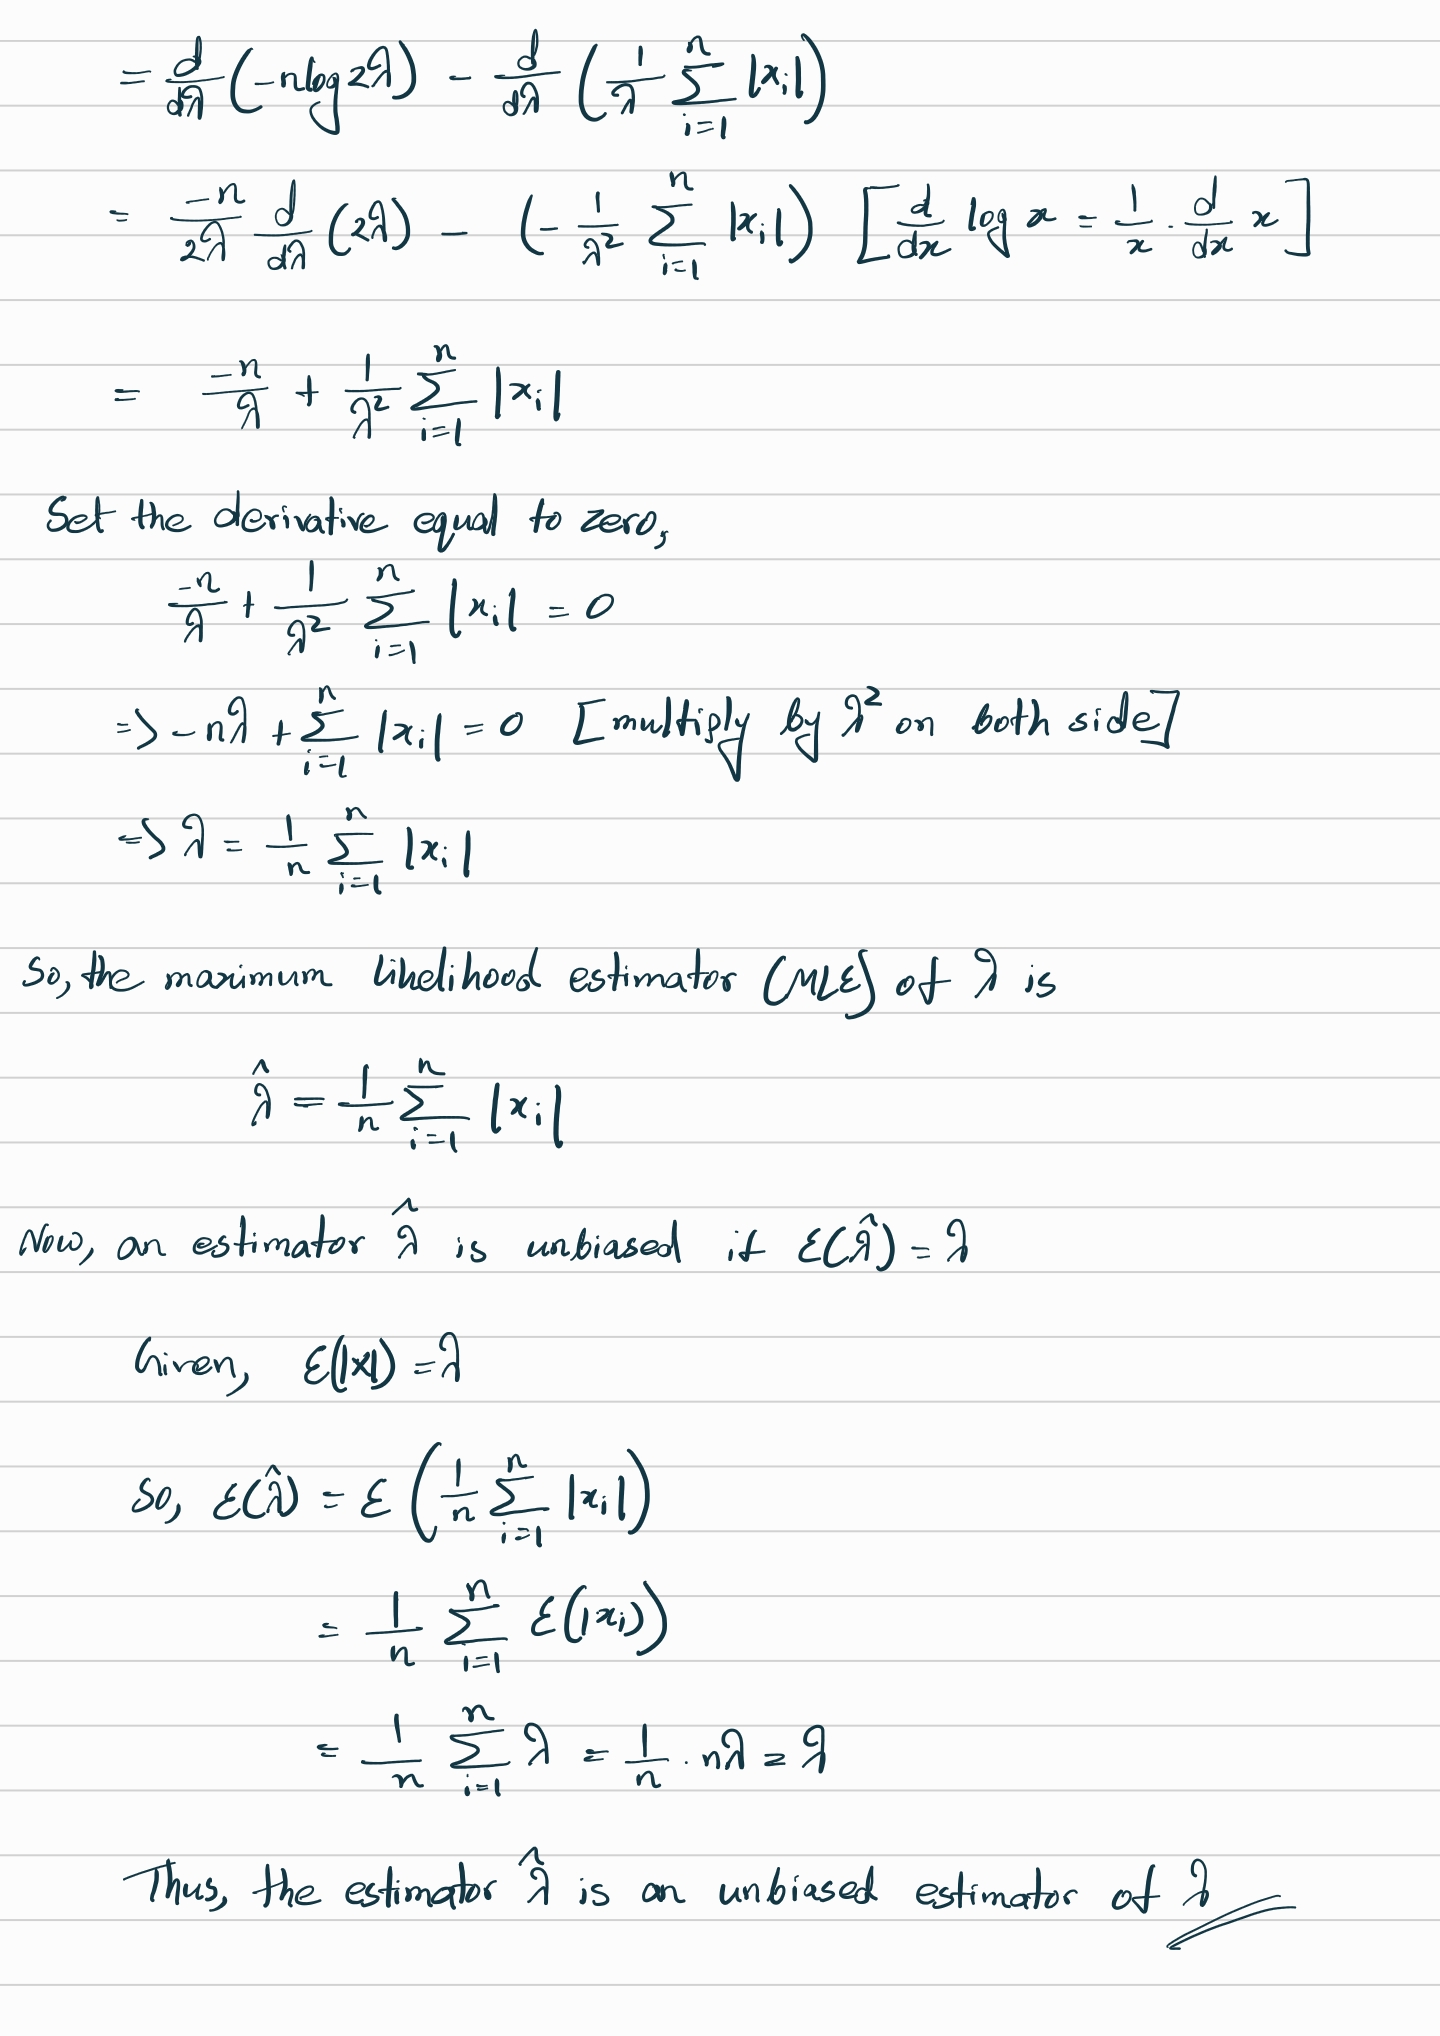 = d/dλ (-n log 2λ) - d/dλ (1/λ ∑_{i=1}^{n} |x_i|)
= -n/2λ d/dλ (2λ) - (-1/λ² ∑_{i=1}^{n} |x_i|) [d/dx log x = 1/x · d/dx x]
= -n/λ + 1/λ² ∑_{i=1}^{n} |x_i|
Set the derivative equal to zero,
-n/λ + 1/λ² ∑_{i=1}^{n} |x_i| = 0
=> -nλ + ∑_{i=1}^{n} |x_i| = 0 [multiply by λ² on both side]
=> λ = 1/n ∑_{i=1}^{n} |x_i|
So, the maximum likelihood estimator (MLE) of λ is
λ̂ = 1/n ∑_{i=1}^{n} |x_i|
Now, an estimator λ̂ is unbiased if E(λ̂) = λ
Given, E(|X|) = λ
So, E(λ̂) = E (1/n ∑_{i=1}^{n} |x_i|)
= 1/n ∑_{i=1}^{n} E(|x_i|)
= 1/n ∑_{i=1}^{n} λ = 1/n · nλ = λ
Thus, the estimator λ̂ is an unbiased estimator of λ